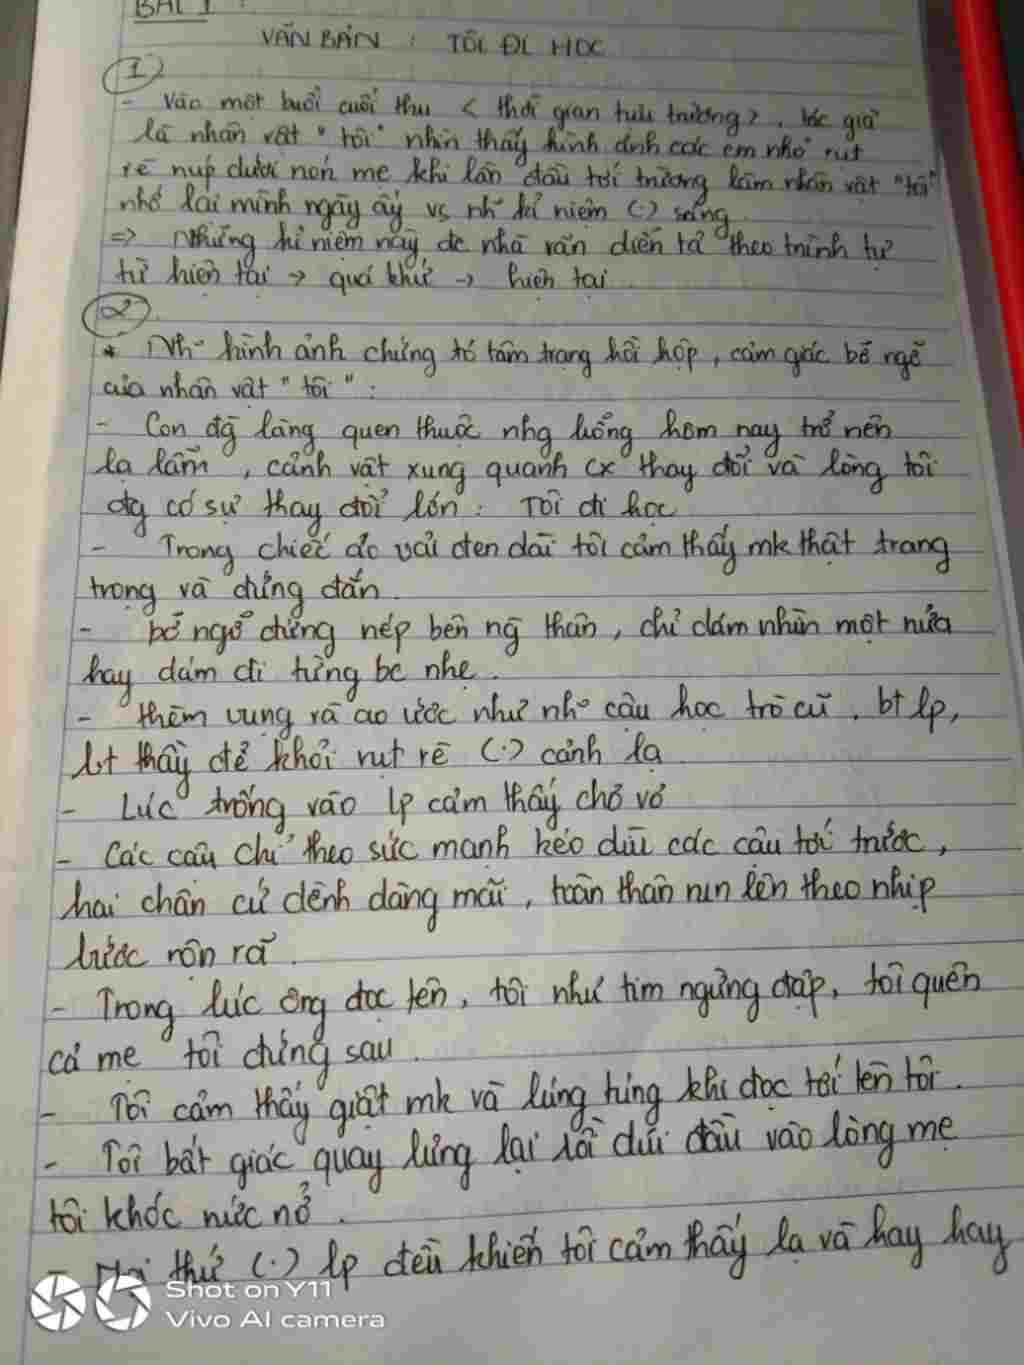 BÀI 1 :
VĂN BẢN : TÔI ĐI HỌC
1
- Vào một buổi cuối thu < thời gian tựu trường >, tác giả
là nhân vật " tôi " nhìn thấy hình ảnh các em nhỏ rụt
rè núp dưới nón mẹ khi lần đầu tới trường làm nhân vật "tôi"
nhớ lại mình ngày ấy vs nh~ kỉ niệm (.) sáng
=> Những kỉ niệm này đc nhà văn diễn tả theo trình tự
từ hiện tại → quá khứ → hiện tại
2
* Nh~ hình ảnh chứng tỏ tâm trạng hồi hộp, cảm giác bỡ ngỡ
của nhân vật " tôi " :
- Con đg làng quen thuộc nhg hôm nay trở nên
lạ lắm , cảnh vật xung quanh cx thay đổi và lòng tôi
đg có sự thay đổi lớn : Tôi đi học
- Trong chiếc áo vải đen dài tôi cảm thấy mk thật trang
trọng và đứng đắn .
- bỡ ngỡ đứng nép bên ng thân , chỉ dám nhìn một nửa
hay dám đi từng bc nhẹ .
- thèm vụng và ao ước như nh~ cậu học trò cũ , bt lp,
bt thầy để khỏi rụt rè (.) cảnh lạ
- Lúc trống vào lp cảm thấy chơ vơ
- Các cậu chỉ theo sức mạnh kéo dìu các cậu tới trước ,
hai chân cứ dềnh dàng mãi , toàn thân run lên theo nhịp
bước rộn rã .
- Trong lúc ông đọc tên , tôi như tim ngừng đập , tôi quên
cả mẹ tôi đứng sau .
- Tôi cảm thấy giật mk và lúng túng khi đọc tới tên tôi .
- Tôi bất giác quay lưng lại rồi dúi đầu vào lòng mẹ
tôi khóc nức nở .
- thứ (.) lp đều khiến tôi cảm thấy lạ và hay hay
Shot on Y11
Vivo AI camera